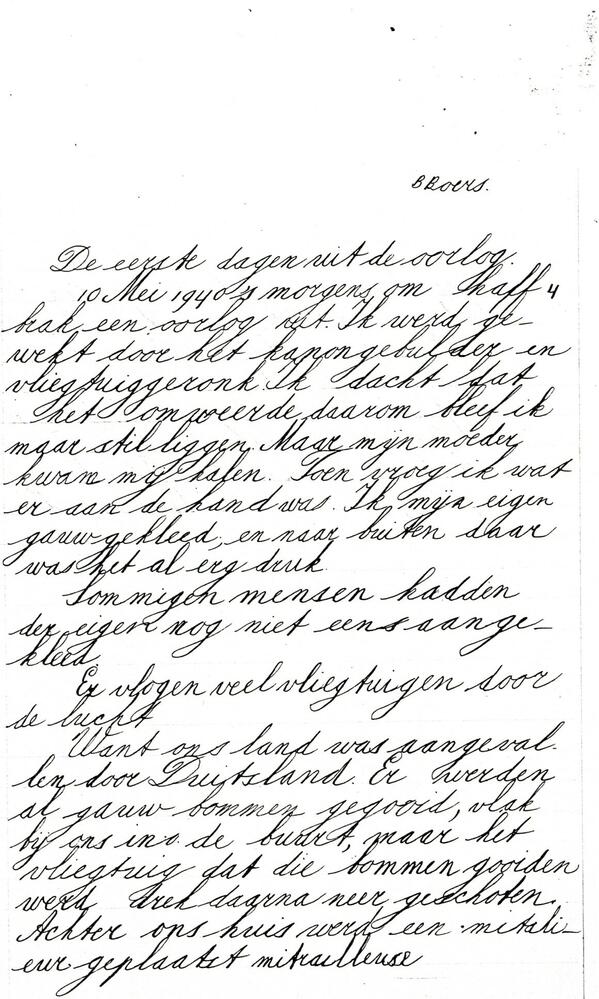 B Roers.
De eerste dagen uit de oorlog.
10 Mei 1940 's morgens om half 4
brak een oorlog uit. Ik werd ge-
wekt door het kanongebulder en
vliegtuiggeronk. Ik dacht dat
het omweerde, daarom bleef ik
maar stil liggen. Maar mijn moeder
kwam mij halen. Toen vroeg ik wat
er aan de hand was. Ik mijn eigen
gauw gekleed, en naar buiten daar
was het al erg druk
Sommigen mensen hadden
der eigen nog niet eens aange-
kleed.
Er vlogen veel vliegtuigen door
de lucht
Want ons land was aangeval-
len door Duitsland. Er werden
al gauw bommen gegooid, vlak
bij ons in de buurt, maar het
vliegtuig dat die bommen gooiden
werd daarna neer geschoten.
Achter ons huis werd een mitali-
eur geplaatst mitrailleuse